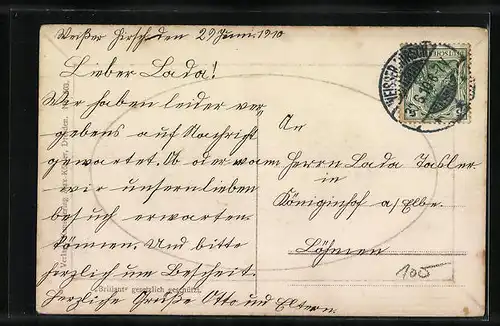 Weißer Hirsch den 29 Juni. 1910
Lieber Lada!
Wir haben leider ver-
gebens auf Nachricht
gewartet. Ob oder wann
wir unsern lieben
besuch erwarten
können. Und bitte
herzlich um Bescheit.
Herzliche Grüße Otto und Eltern.
An
Herrn Lada
in
Königinhof a/Elbe.
Böhmen
100
"Brillant" gesetzlich geschützt.